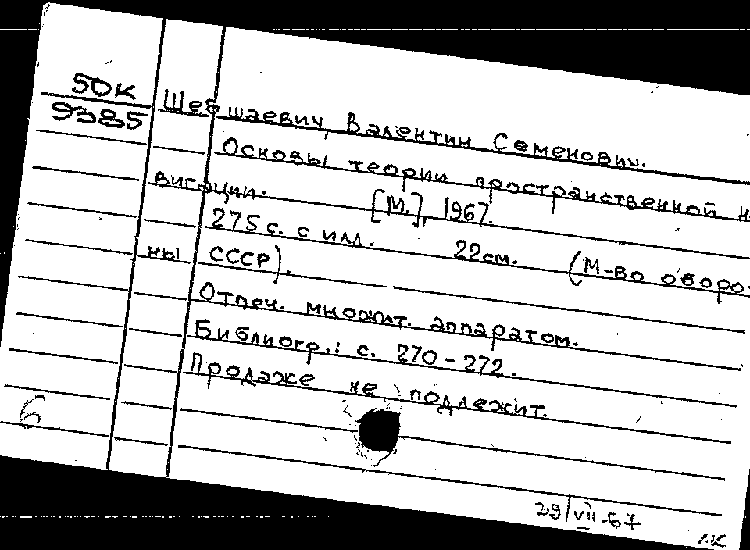 50К
9385
Шебшаевич, Валентин Семенович.
Основы теории пространственной на
вигации. [М.], 1967.
275 с. с илл. 22 см. (М-во оборо
ны СССР).
Отпеч. множит. аппаратом.
Библиогр.: с. 270-272.
Продаже не подлежит.
6
29/VII-67